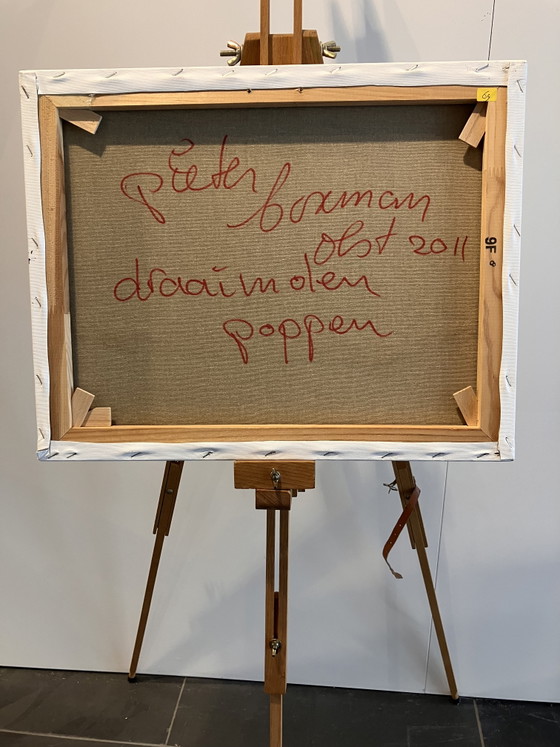 pieter
boxman
olst 2011
draaimolen
poppen
9F